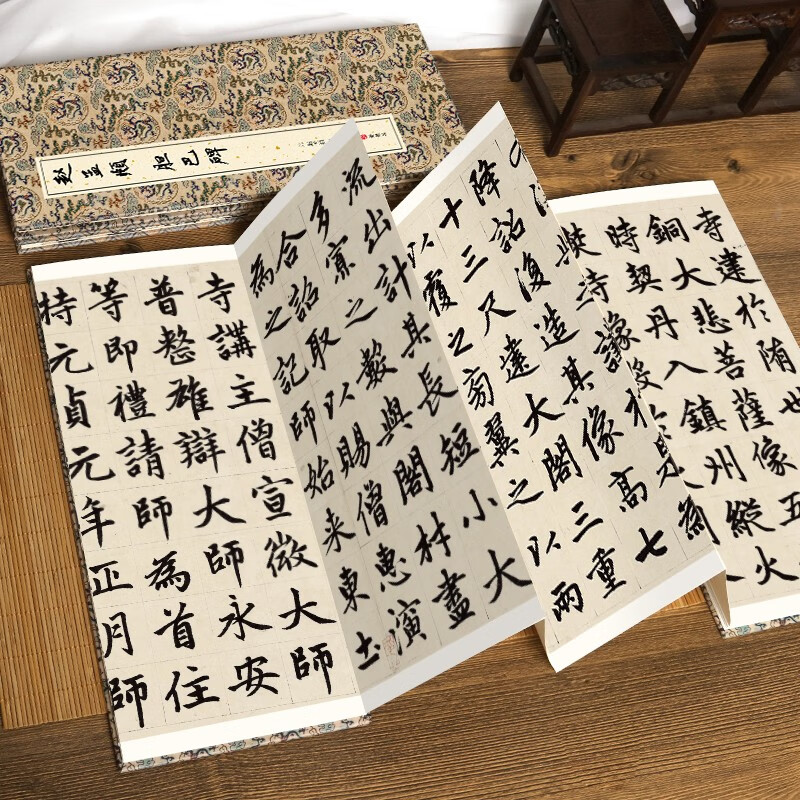 赵孟頫 胆巴碑
寺建於隋世
銅大悲菩薩像五
時契丹入鎮州縱火
焚寺
降詔復造其像高七
十三尺建大閣三重
以覆之旁翼之以兩
流出計其長短小大
多寡之數與閣材盡
合詔取以賜僧惠演
為之記師始来東土
寺講主僧宣微大師
普整雄辯大師永安
等即禮請師為首住
持元貞元年正月師